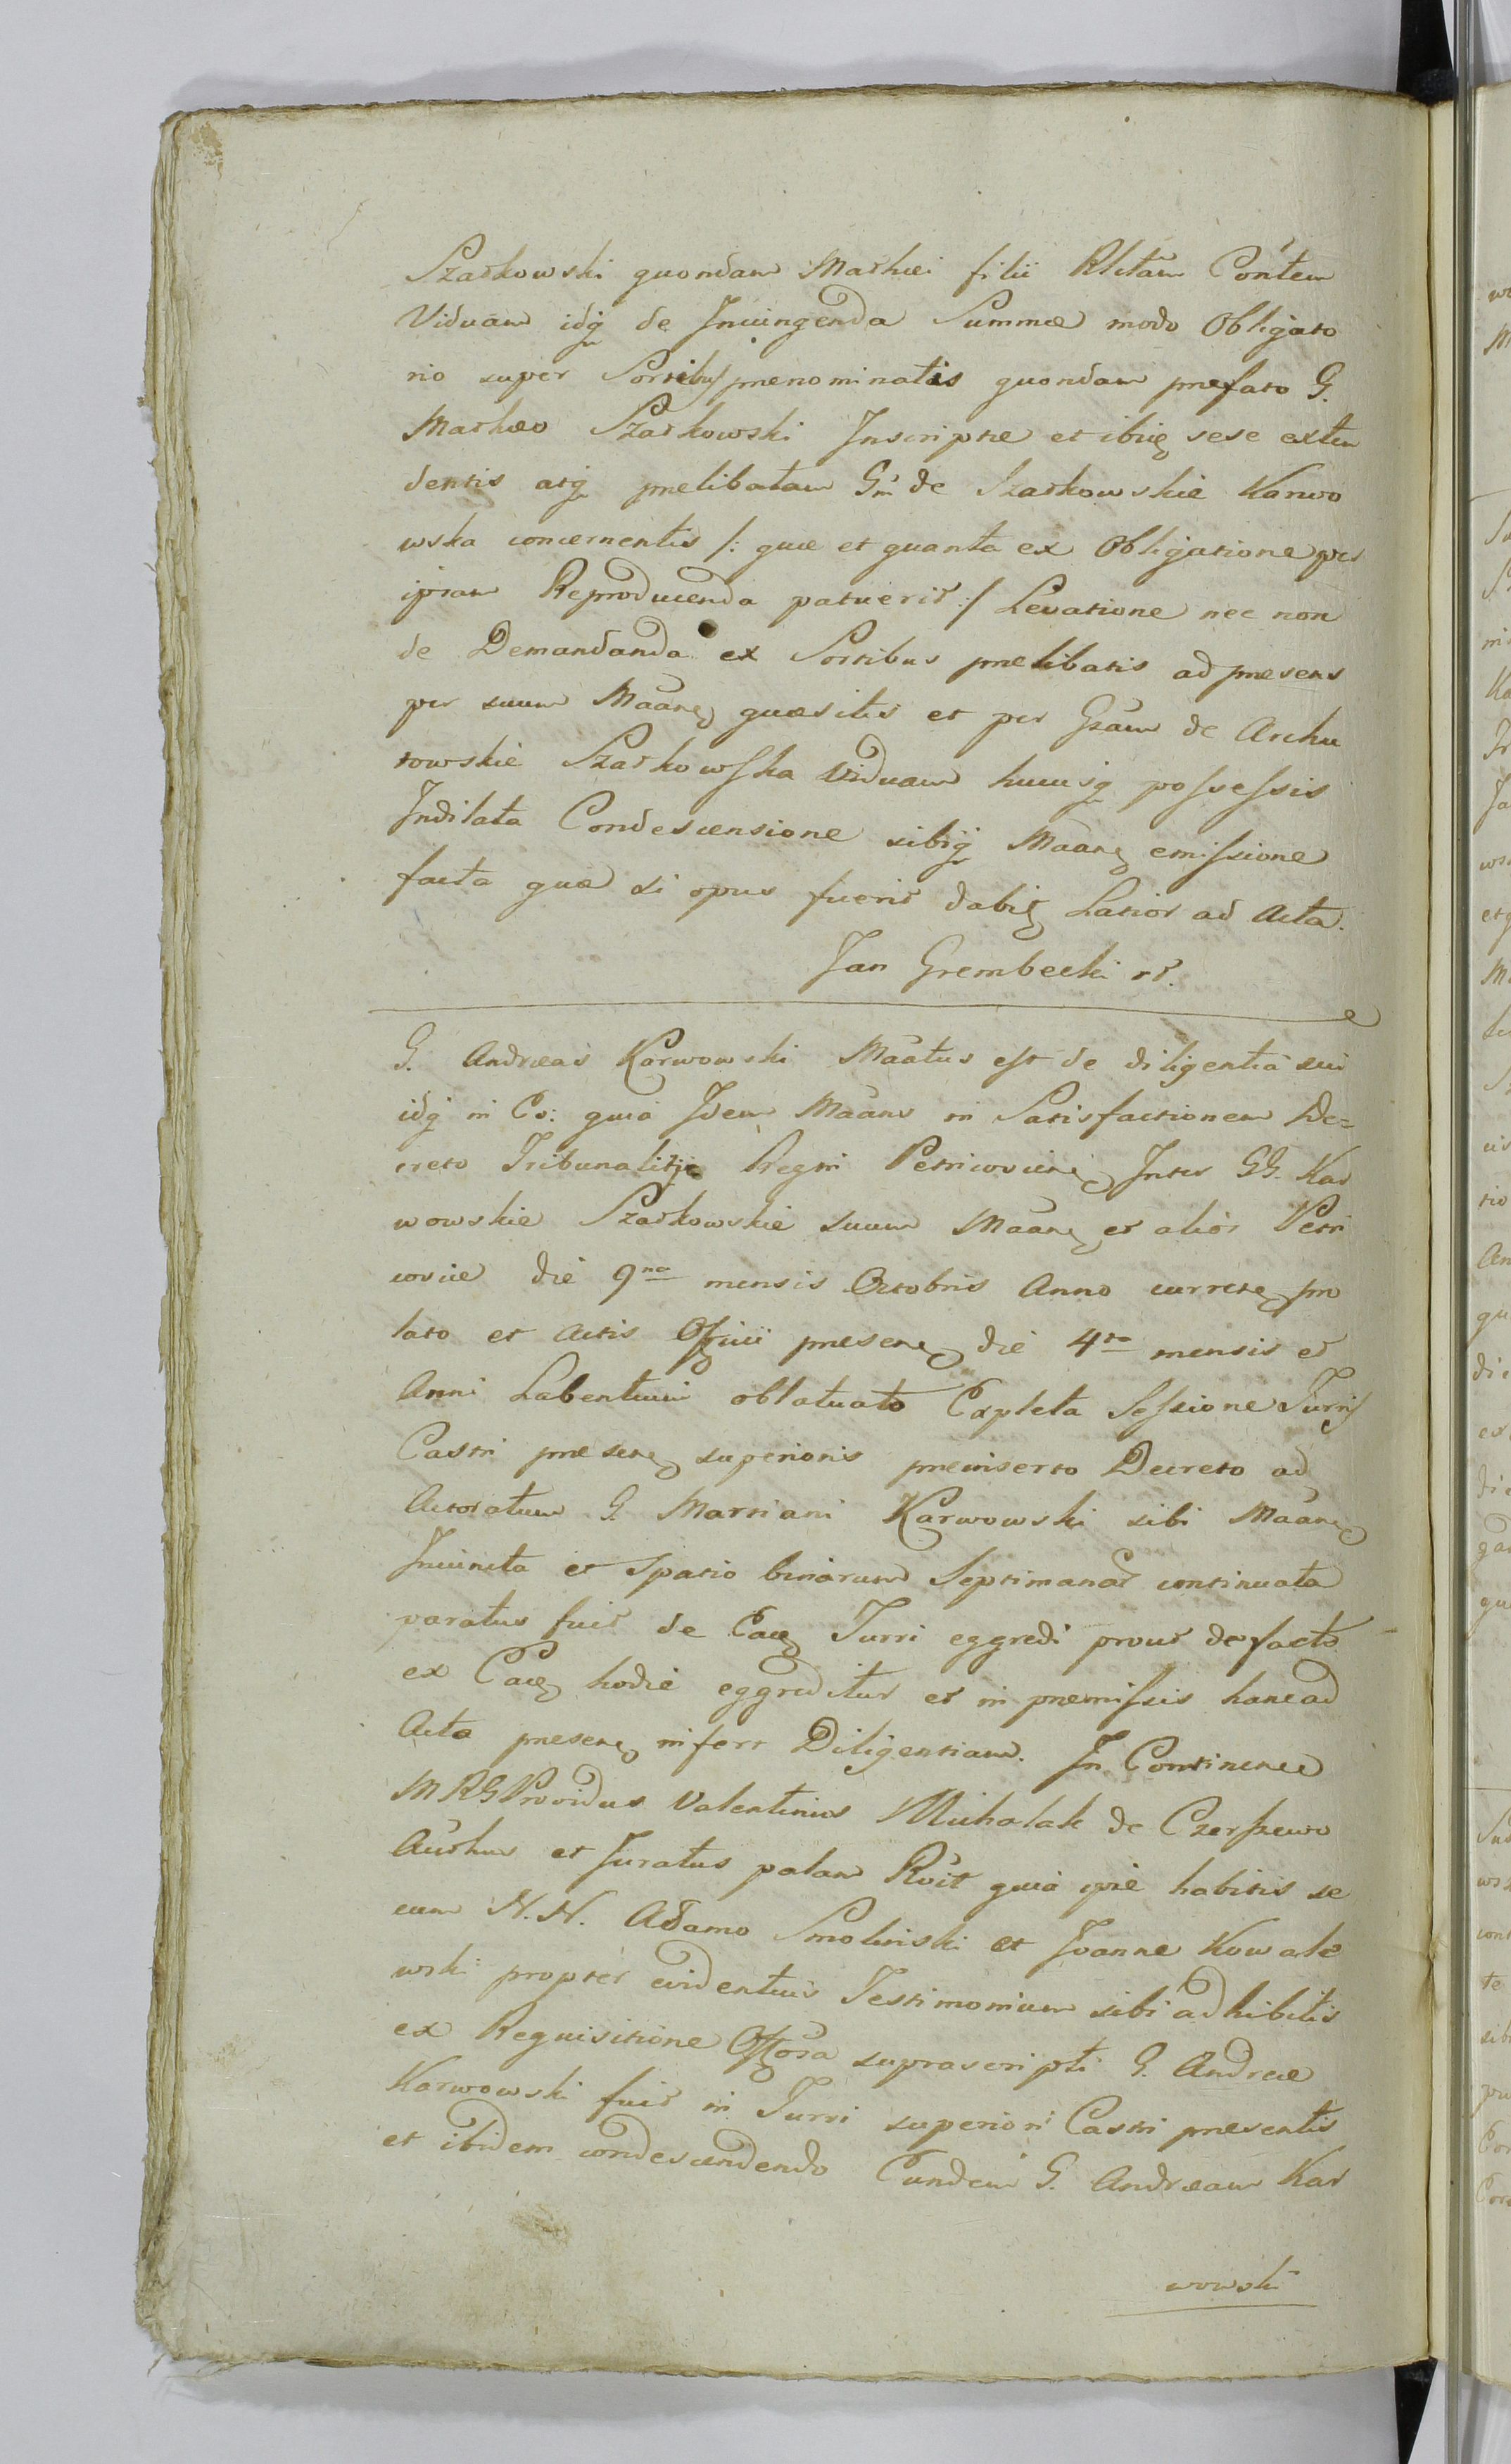 Szatkowski quondam Mathæi filii Rlctam Contem
Viduam idq̃ de Iniungenda Summæ modo Obligato
rio super Sortibus prænominatis quondam præfato G.
Mathæo Szatkowski Inscriptæ et ibiq̃ sese exten
dentis atq̃ prælibatam Gm̃ de Szatkowskie Karwo
wska concernentis /: quæ et quanta ex Obligatione per
ipsam Reproducenda patuerit :/ Levatione nec non
de Demandanda ex Sortibus prælibatis ad præsens
per suum Maãnẹ quæsitis et per Gzãm de Archu
towskie Szatkowska Viduam hucusq̃ possessis
Indilata Condescensione sibiq̃ Maãnẹ emissione
facta quæ si opus fuerit dabit̃ Latior ad Acta.
Jan Grembecki rt.
G. Andreas Karwowski Maãtus est de diligentia sui
idq̃ in Eo: quia Idem Maãns in Satisfactionem De=
creto Tribunalitio Regni Petricovien Inter GG. Kar
wowskie Szatkowskie suum Maãnẹ et alios Petri
coviæ die 9na mensis Octobris Anno currente pro
lato et Actis Officii præsenẹ die 4ta mensis et
Anni Labentium oblatuato Expleta Sessione Turris
Castri præsenẹ superioris præinserto Decreto ad
Actoratum G. Martiani Karwowski sibi Maãnẹ
Iniuncta et Spatio binarum Septimanar̃ continuata
paratus fuit de Eaq̃ Turri eggredi prout de facto
ex Eaq̃ hodie eggreditur et in præmissis hanc ad
Acta præsenẹ infert Diligentiam. In Continenti
MRG Providus Valentinus Michalak de Czerszewo
Authus et Juratus palam Rcit quia ipse habitis se
cum N.N. Adamo Smolinski et Joanne Kowale
wski propter evidentius Testimonium sibi adhibitis
ex Requisitione Offosa suprascripti G. Andreæ
Karwowski fuit in Turri superiori Castri præsentis
et ibidem condescendendo Eundem G. Andream Kar
wowski